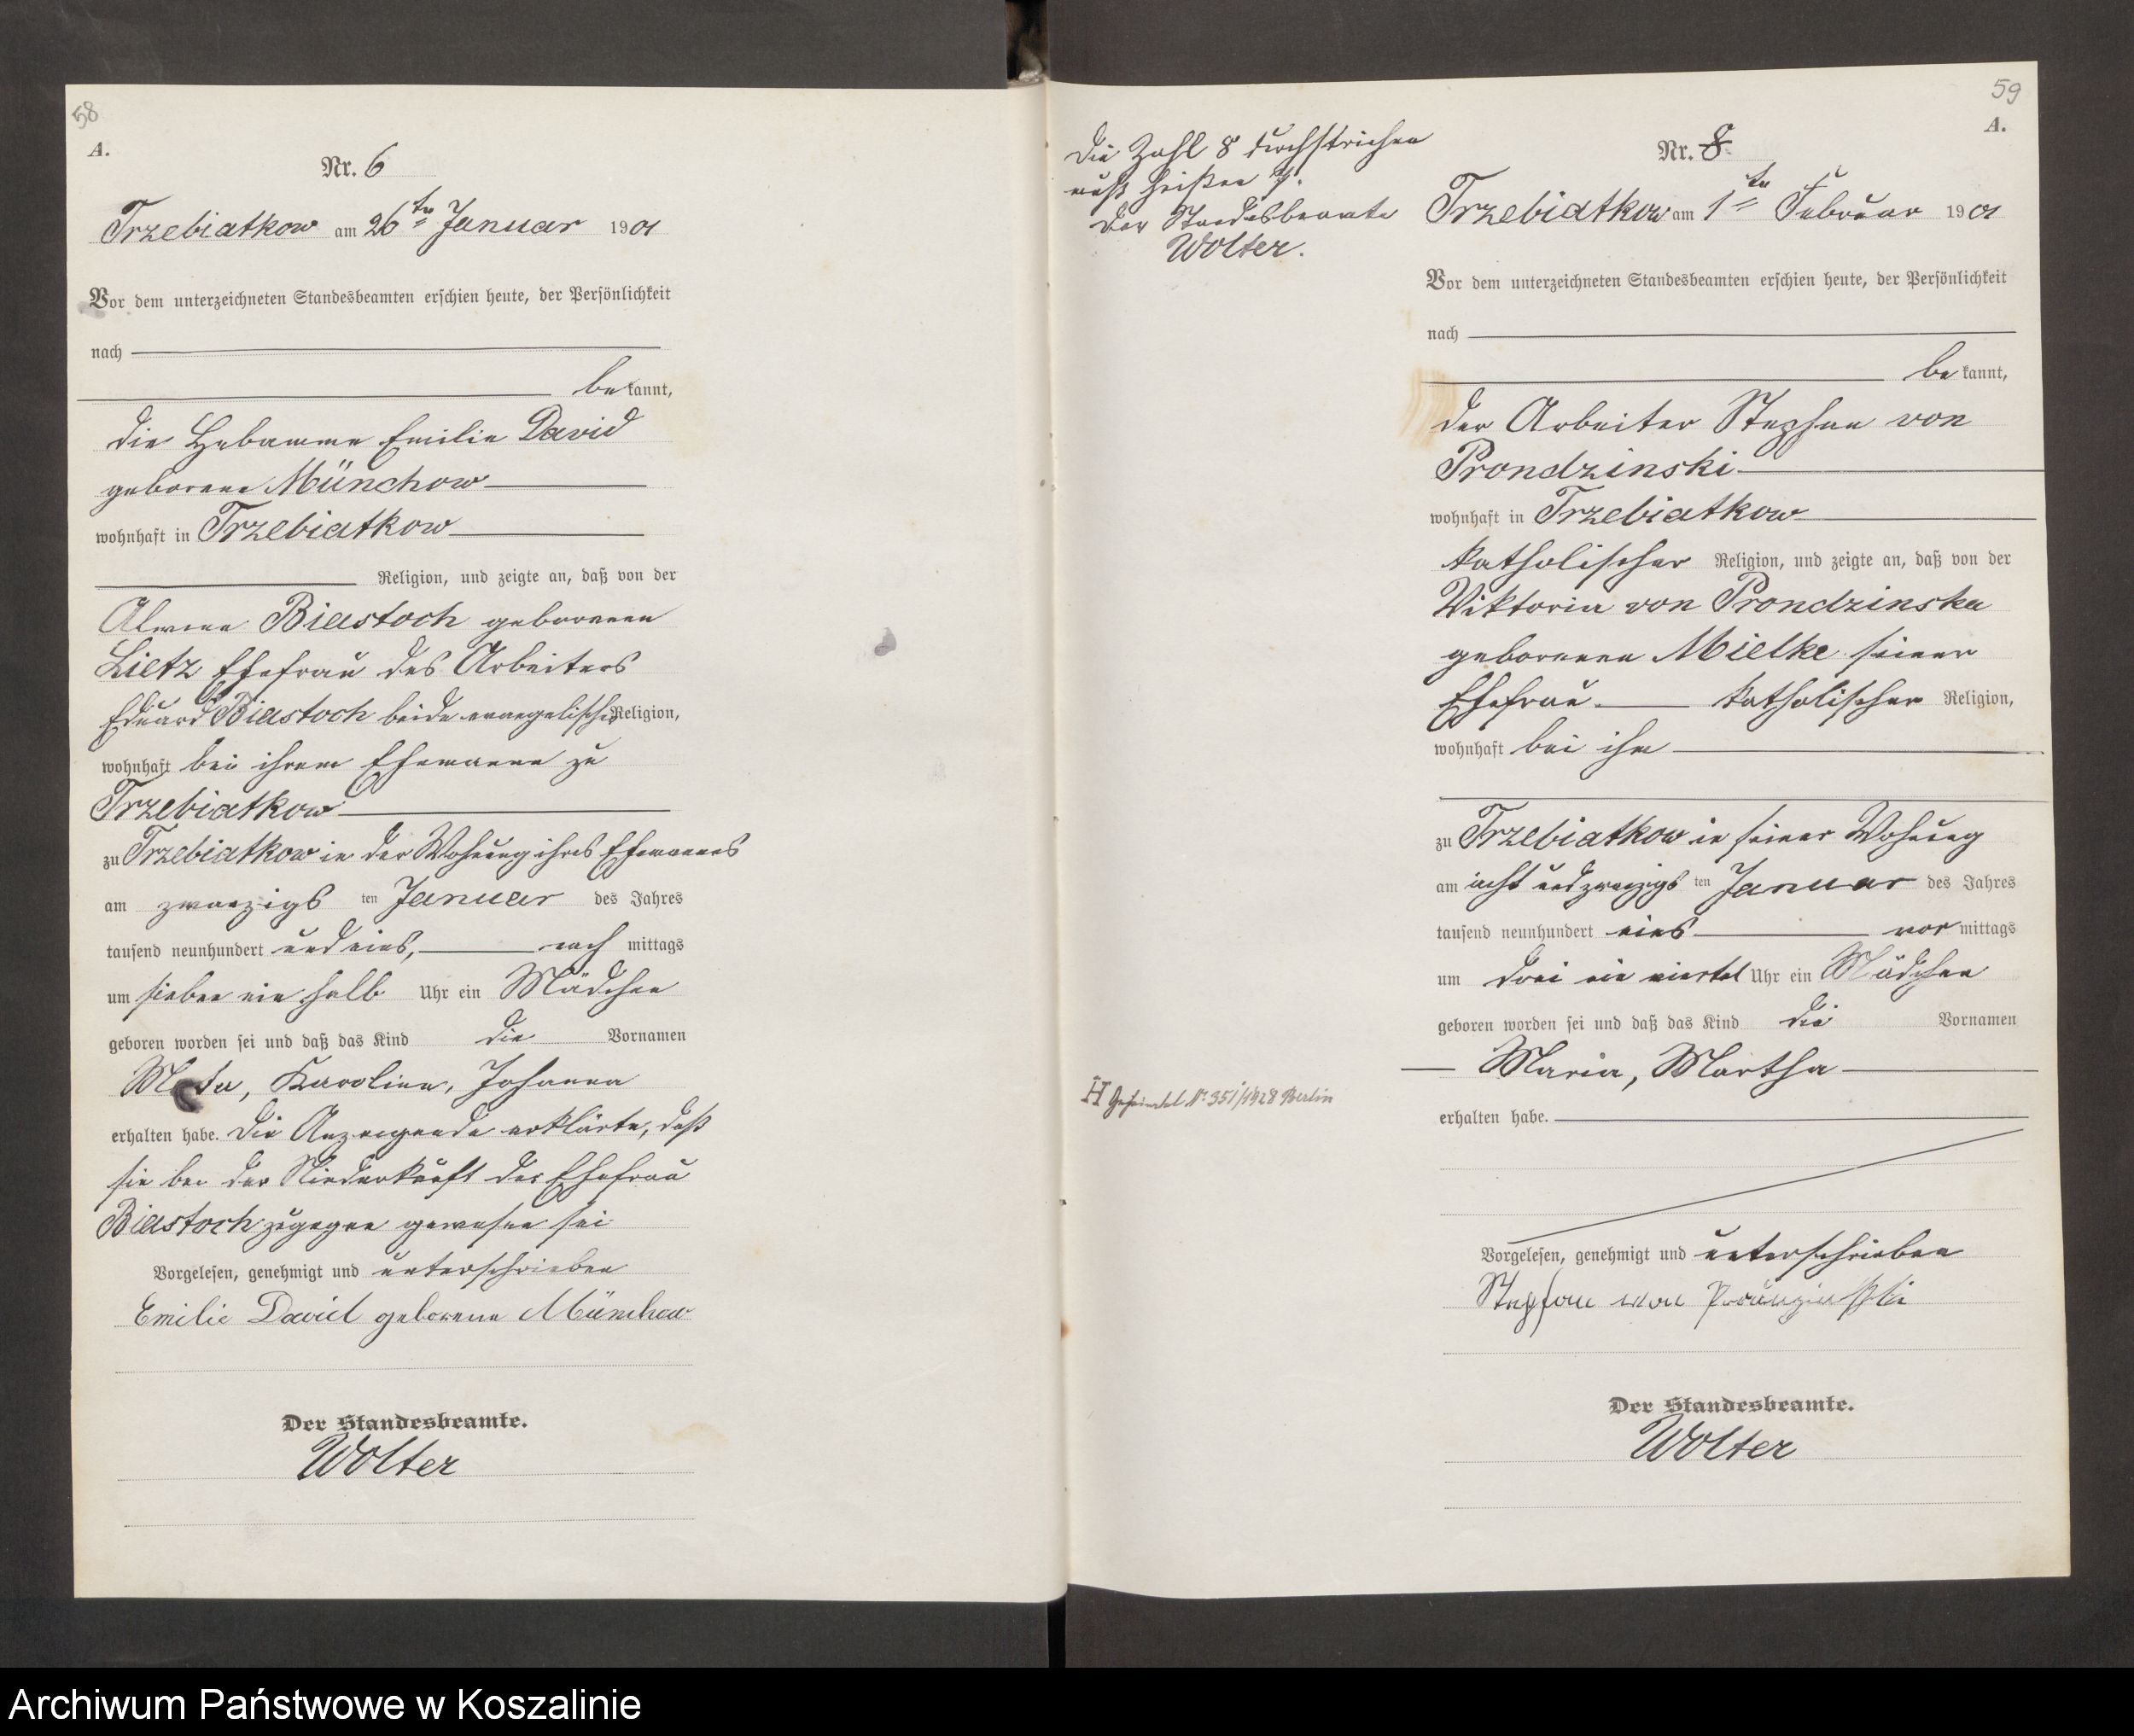 58
A.
Nr. 6
Trzebiatkow am 26ten Januar 1901
Vor dem unterzeichneten Standesbeamten erschien heute, der Persönlichkeit
nach
bekannt,
die Hebamme Emilie David
geborene Münchow
wohnhaft in Trzebiatkow
Religion, und zeigte an, daß von der
Biastoch geborenen
Lietz Ehefrau des Arbeiters
Eduard Biastoch beide evangelischer Religion,
wohnhaft bei ihrem Ehemanne zu
Trzebiatkow
zu Trzebiatkow in der Wohnung ihres Ehemannes
am zwanzigsten Januar des Jahres
tausend neunhundert und eins, nach mittags
um sieben ein halb Uhr ein Mädchen
geboren worden sei und daß das Kind die Vornamen
Karoline, Johanna
erhalten habe. Die Anzeigende erklärte, daß
sie bei der Niederkunft der Ehefrau
Biastoch zugegen gewesen sei
Vorgelesen, genehmigt und unterschrieben
Emilie David geborene Münchow
Der Standesbeamte.
Wolter
59
A.
Die Zahl 8 durchstrichen
muß heißen 7.
Der Standesbeamte
Wolter.
Nr. 8
Trzebiatkow am 1ten Februar 1901
Vor dem unterzeichneten Standesbeamten erschien heute, der Persönlichkeit
nach
bekannt,
der Arbeiter Stephan von
Prondzinski
wohnhaft in Trzebiatkow
katholischer Religion, und zeigte an, daß von der
Viktoria von Prondzinska
geborenen Mielke seiner
Ehefrau katholischer Religion,
wohnhaft bei ihm
zu Trzebiatkow in seiner Wohnung
am acht und zwanzigsten Januar des Jahres
tausend neunhundert eins vor mittags
um drei ein viertel Uhr ein Mädchen
geboren worden sei und daß das Kind die Vornamen
Maria, Martha
H Geheiratet Nr. 351/1928 Berlin
erhalten habe.
Vorgelesen, genehmigt und unterschrieben
Stephan von
Der Standesbeamte.
Wolter
Archiwum Państwowe w Koszalinie